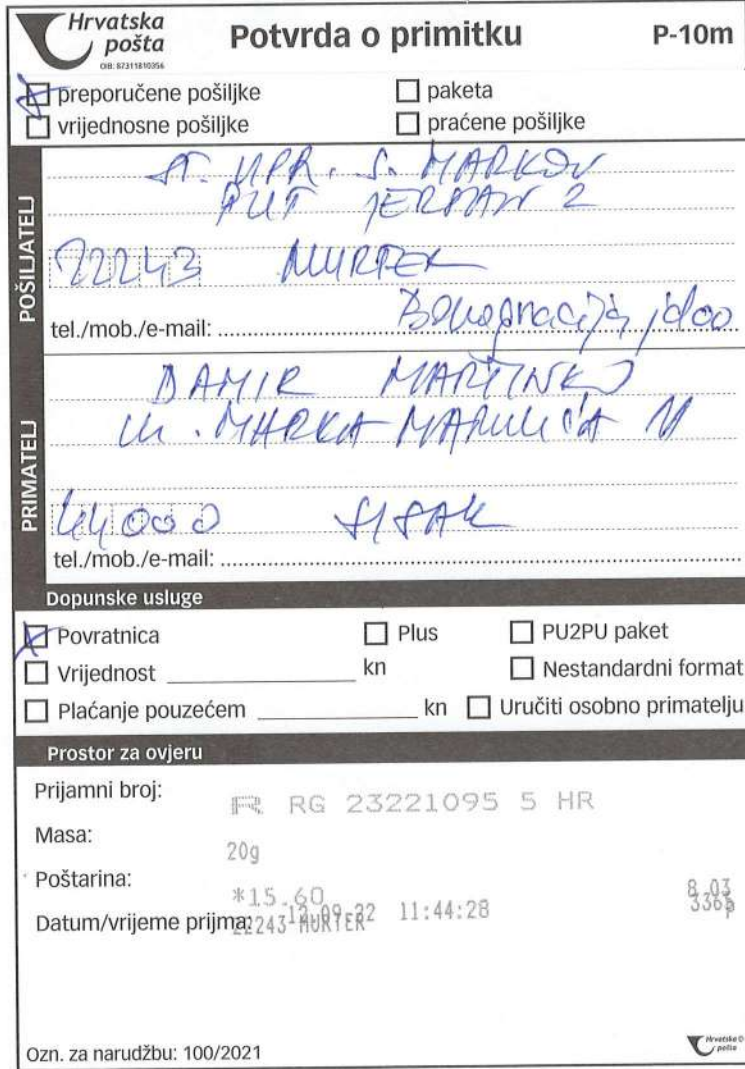 Hrvatska
pošta
OIB: 87311810356
Potvrda o primitku
P-10m
preporučene pošiljke
paketa
vrijednosne pošiljke
praćene pošiljke
POŠILJATELJ
ST. UPR. S. MARKOV
PUT JERSAN 2
22243 MURTER
tel./mob./e-mail:
jdoo
PRIMATELJ
DAMIR MARTINKO
Ul. MARKA MARULIĆA 11
44000 SISAK
tel./mob./e-mail:
Dopunske usluge
Povratnica
Plus
PU2PU paket
Vrijednost kn
Nestandardni format
Plaćanje pouzećem kn
Uručiti osobno primatelju
Prostor za ovjeru
Prijamni broj:
R RG 23221095 5 HR
Masa:
20g
Poštarina:
*15.60
8.03
Datum/vrijeme prijma:
12.09.22 11:44:28
22243 MURTER
Ozn. za narudžbu: 100/2021
Hrvatska
pošta